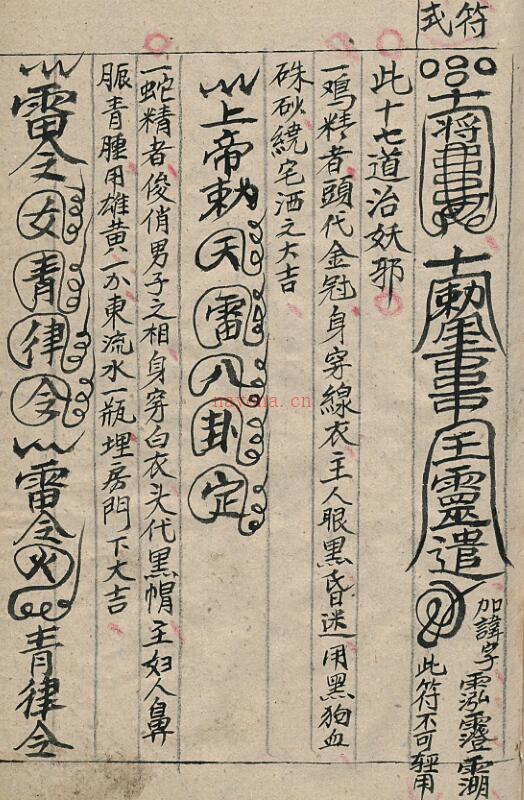 符式
将
勅
王靈遣
加諱字
此符不可輕用
此十七道治妖邪
一鸡精者頭代金冠身穿線衣主人眼黑昏迷用黑狗血
硃砂繞宅洒之大吉
上帝勅天雷八卦定
一蛇精者俊俏男子之相身穿白衣头代黑帽主妇人鼻
脈青腫用雄黄一分東流水一瓶埋房門下大吉
雷令女青律令雷令火青律令
naysha.cn